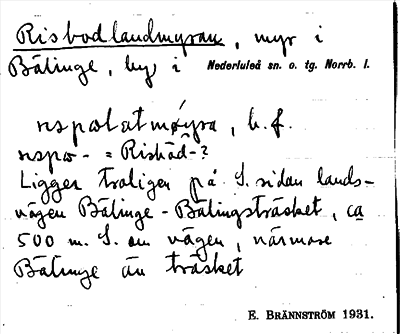 Risbodlandmyran, myr i
Bälinge, by i Nederluleå sn. o. tg. Norrb. l.
b. f.
= Risbäd-?
Ligger troligen på S. sidan lands-
vägen Bälinge - Bälingsträsket, ca
500 m. S. om vägen, närmare
Bälinge än träsket
E. BRÄNNSTRÖM 1931.